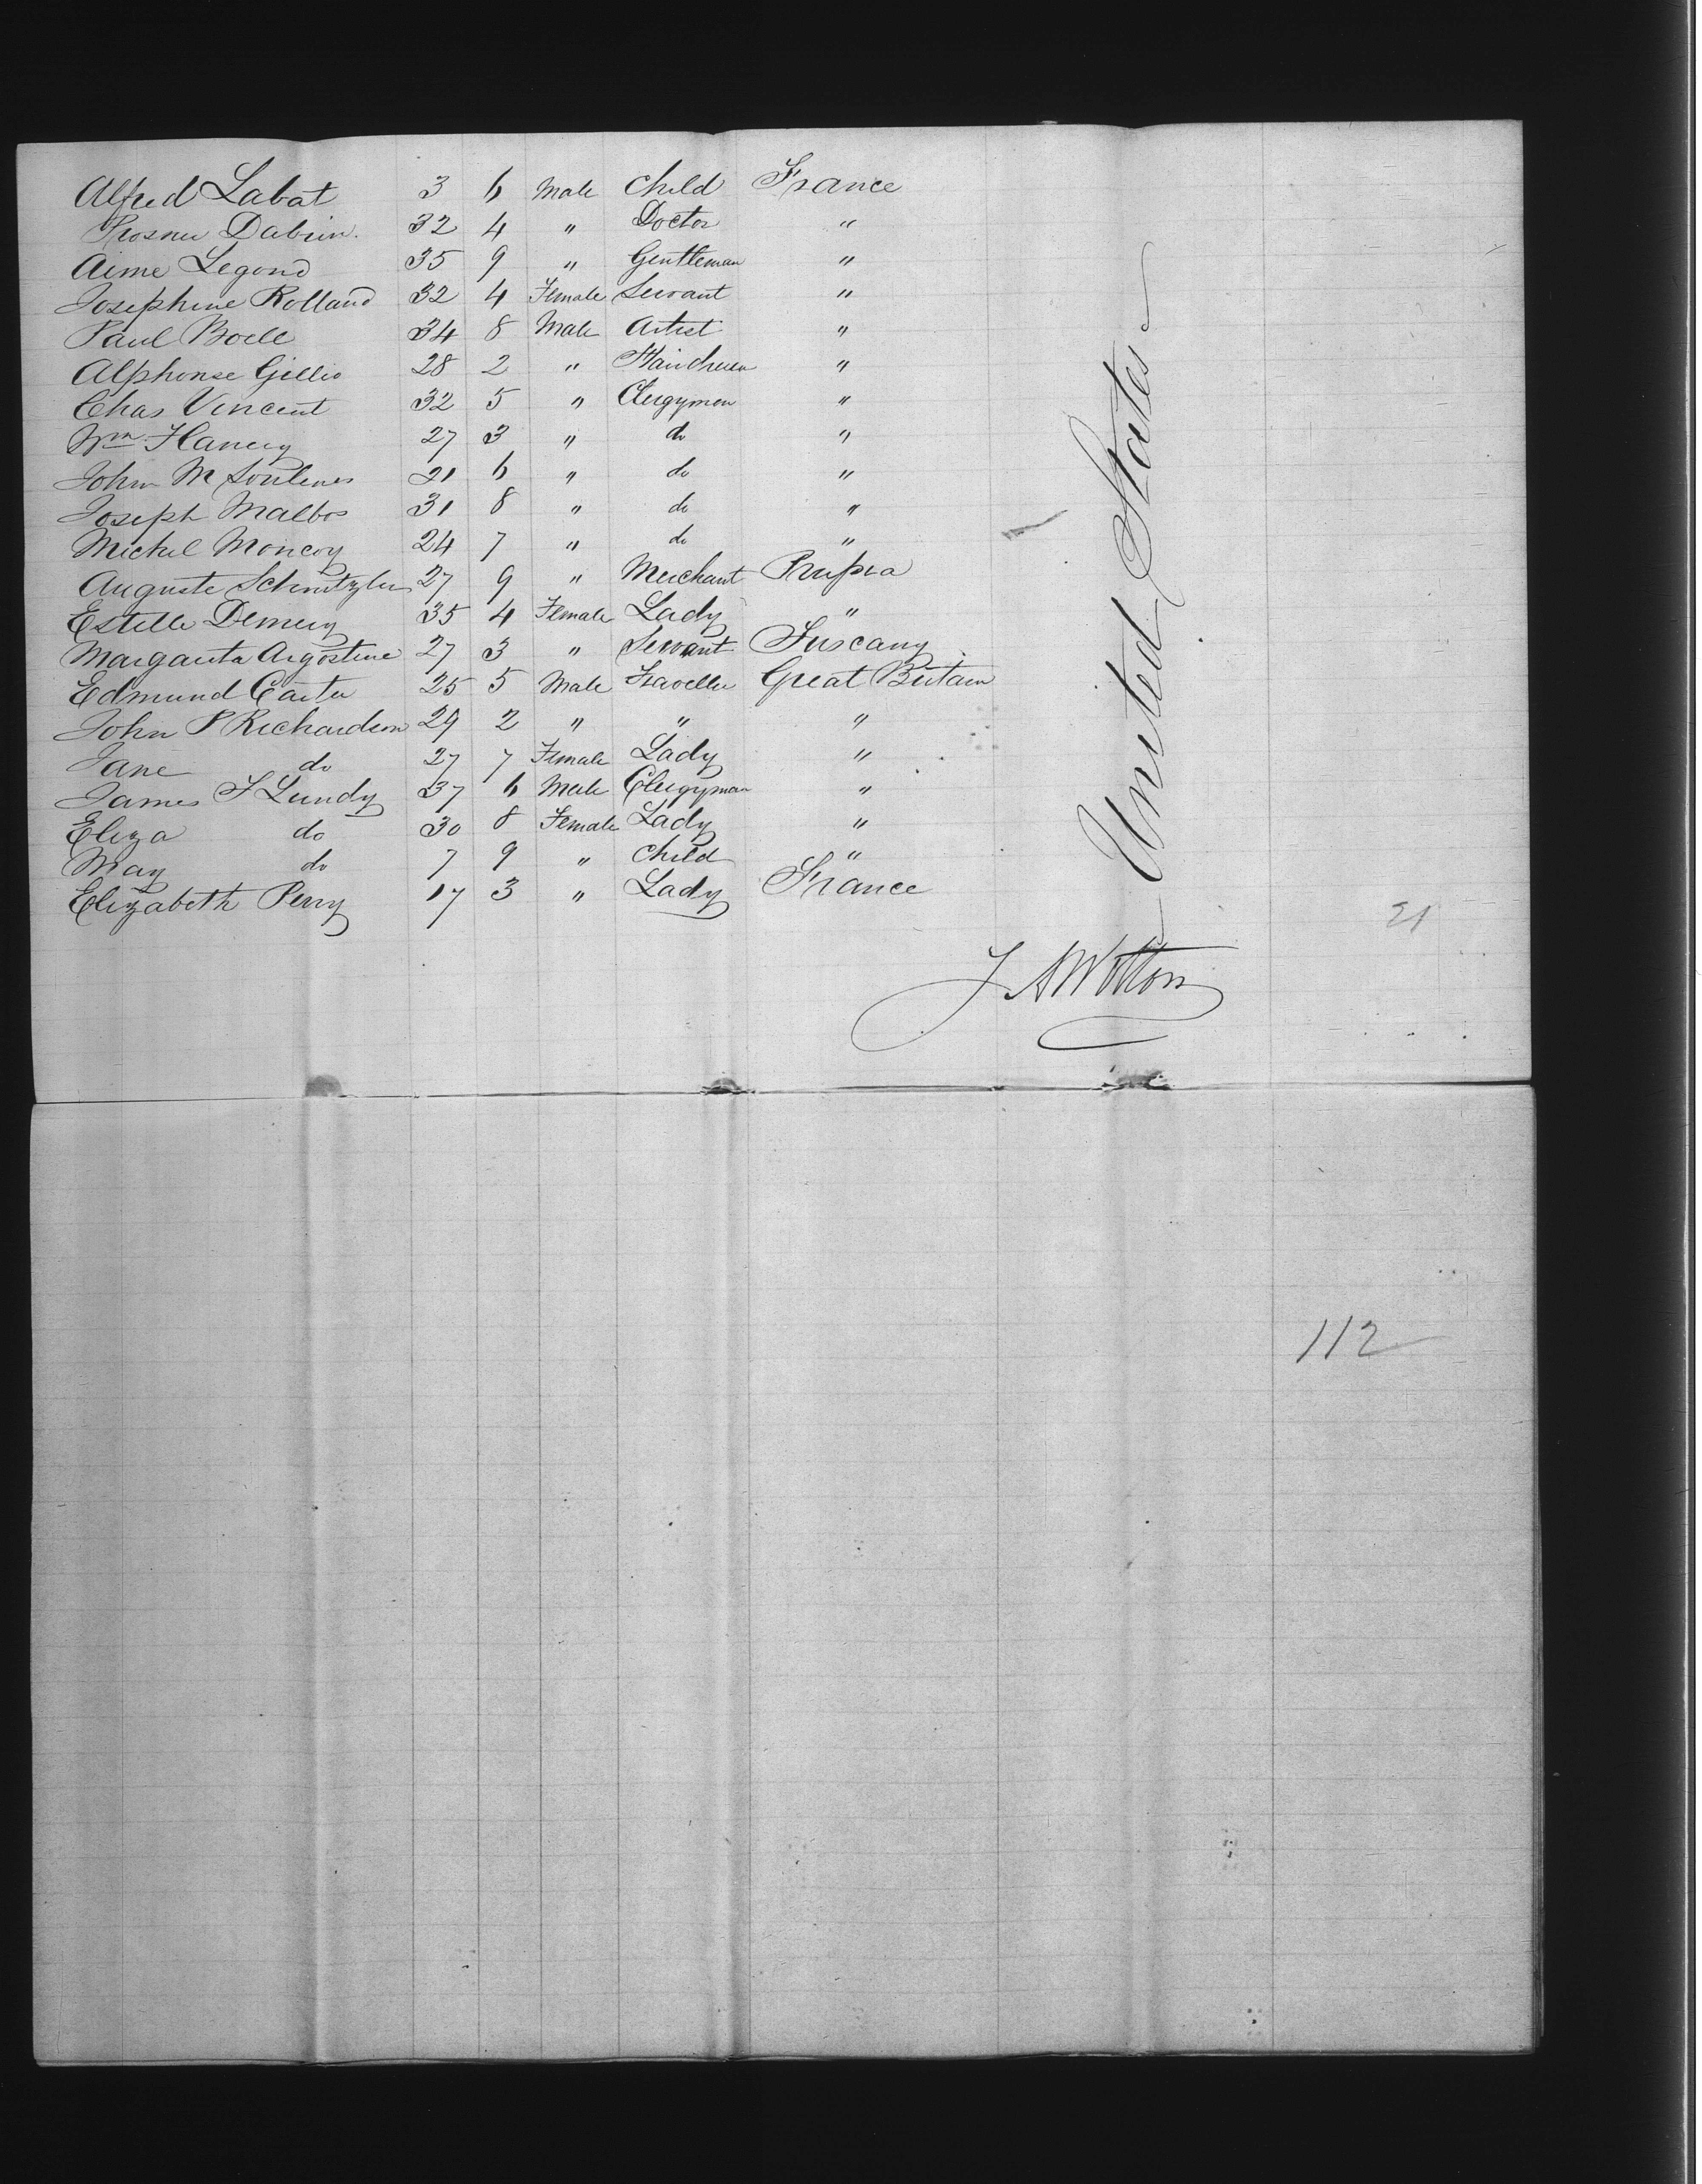 Alfred Labat 3 6 Male Child France
Prosper Dabrin. 32 4 " Doctor "
Aime Legond 35 9 " Gentleman "
Josephine Rolland 32 4 Female Servant "
Paul Boell 34 8 Male Artist "
Alphonse Gillio 28 2 " "
Chas Vincent 32 5 " Clergyman "
Wm 27 3 " do "
John M 21 6 " do "
Joseph Malbos 31 8 " do "
Michel Moncoy 24 7 " do "
Auguste Schnitzler 27 9 " Merchant Prussia
Estelle Demery 35 4 Female Lady "
Margarita Argostine 27 3 " Servant Tuscany
Edmund Carter 25 5 Male Traveller Great Britain
John P Richardson 29 2 " " "
Jane do 27 7 Female Lady "
James F Lundy 37 6 Male Clergyman "
Eliza do 30 8 Female Lady "
May do 7 9 " Child "
Elizabeth Perry 17 3 " Lady France
United States
21
J. A Wotton
112